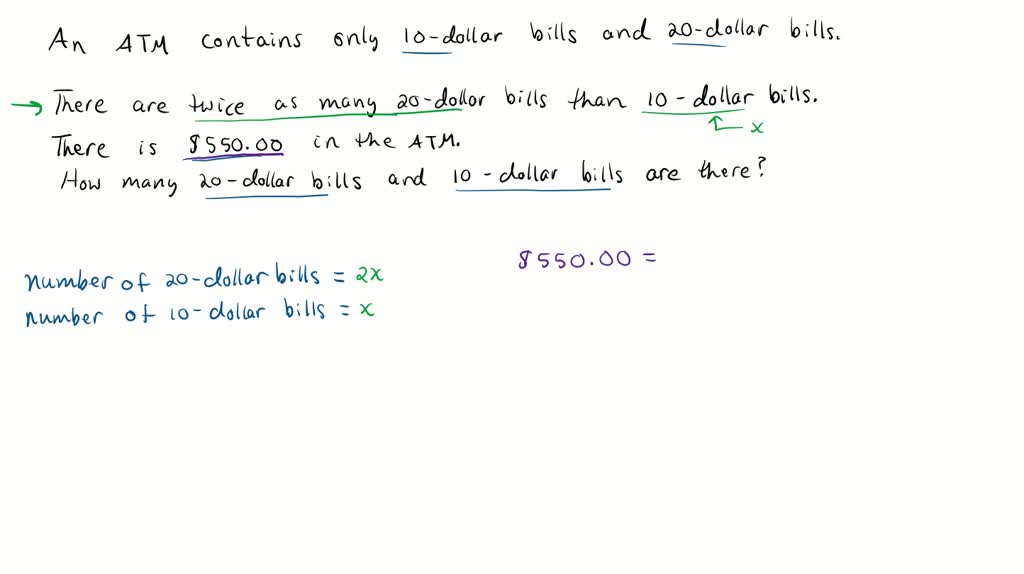 An ATM contains only 10-dollar bills and 20-dollar bills.
There are twice as many 20-dollar bills than 10-dollar bills.
x
There is $550.00 in the ATM.
How many 20-dollar bills and 10-dollar bills are there?
$550.00 =
number of 20-dollar bills = 2x
number of 10-dollar bills = x